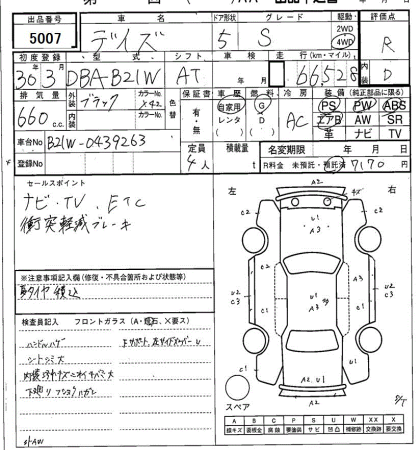 出品番号 車名 ドア形状 グレード 駆動 評価点
5007 デイズ 5 S 2WD 4WD R
初度登録 型式 シフト 車検 走行(km・マイル) 内装
30年3月 DBA-B21W AT 年 月 66528 D
排気量 外装 カラーNo. 色替 保証書 車歴 燃料 冷房 装備(純正部品に限る)
660 c.c. ブラック X42 有・無 自家用 レンタ G D AC PS PW ABS
内装 カラーNo. エアB AW SR
車 ナビ TV
車台No B21W-0439263 定員 積載量 名変期限 年 月
登録No 4人 t R料金 未預託・預託済 7170円
セールスポイント
ナビ・TV、ETC
衝突軽減ブレーキ
左 右
A2
キズ
C2 U1 A3 C2
C2 A3 C2
U2 C3 U2 C3
A3
C2 C2
A2 U1
スペア
※注意事項記入欄(修復・不具合箇所および状態等)
夏タイヤ積込
検査員記入 フロントガラス(A・飛石、X要ス)
ハンドルハゲ
シートシミ大
外AW
A B C P S U W XX X
線キズ 腐食 要塗装 サビ 凹凸 補修跡 交換跡 要交換